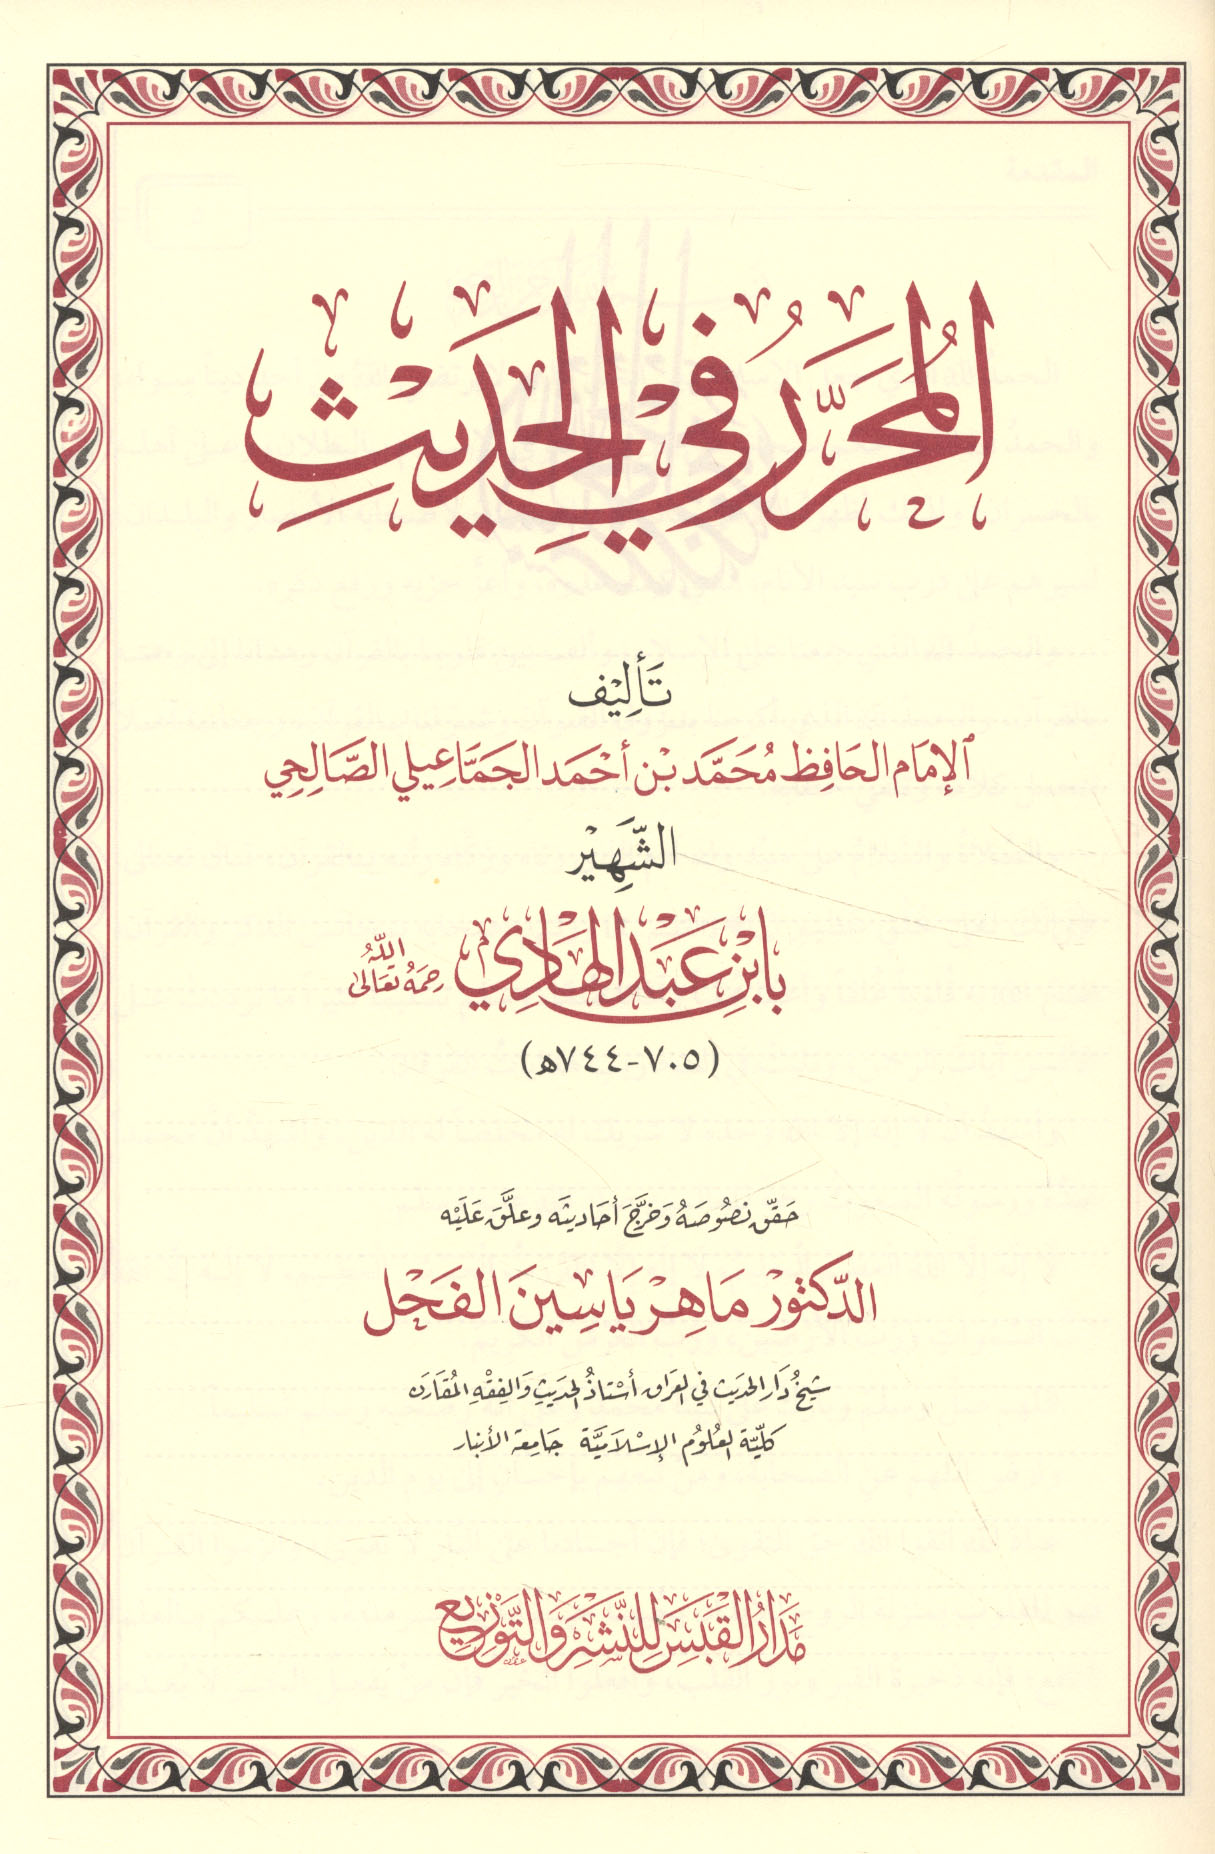 المُحَرَّرُ فِي الحَدِيثِ
تَأْلِيْف
الإمَام الحَافِظ مُحَمَّد بْن أحْمَد الجَمَّاعِيلي الصَّالِحِي
الشَّهِيْر
بِابْنِ عَبْدِ الهَادِي رحمَهُ اللّهُ تعَالىٰ
(٧٠٥-٧٤٤ه)
حَقّق نصُوصَهُ وَخرَّجَ أحَاديثه وعلَّق عَلَيْه
الدّكتورْ مَاهِرْ يَاسِينَ الفَحْل
شيخُ دَار الحديث في العرَاق أسْتاذُ الحَديثِ وَالفِقْهِ المُقَارَن
كلّيّة العُلوُم الإسْلاَميَّة جَامِعة الأنبَار
مَدَارُ القَبَسِ لِلنَّشْرِ وَالتَّوْزِيع